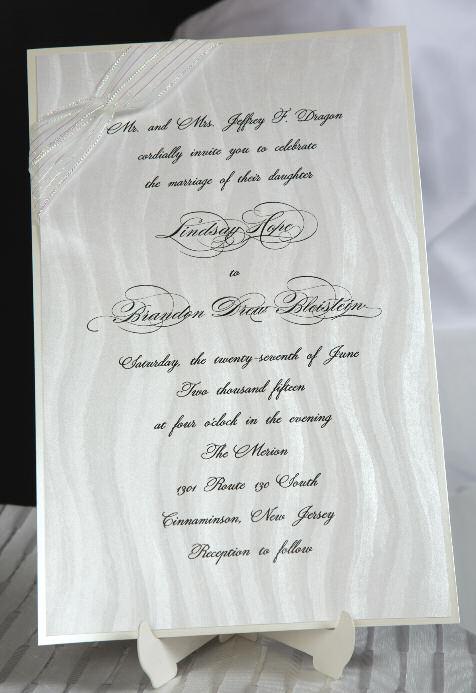 Mr. and Mrs. Jeffrey F. Dragon
cordially invite you to celebrate
the marriage of their daughter
Lindsay Hope
to
Brandon Drew Bleistein
Saturday, the twenty-seventh of June
Two thousand fifteen
at four o'clock in the evening
The Merion
1301 Route 130 South
Cinnaminson, New Jersey
Reception to follow